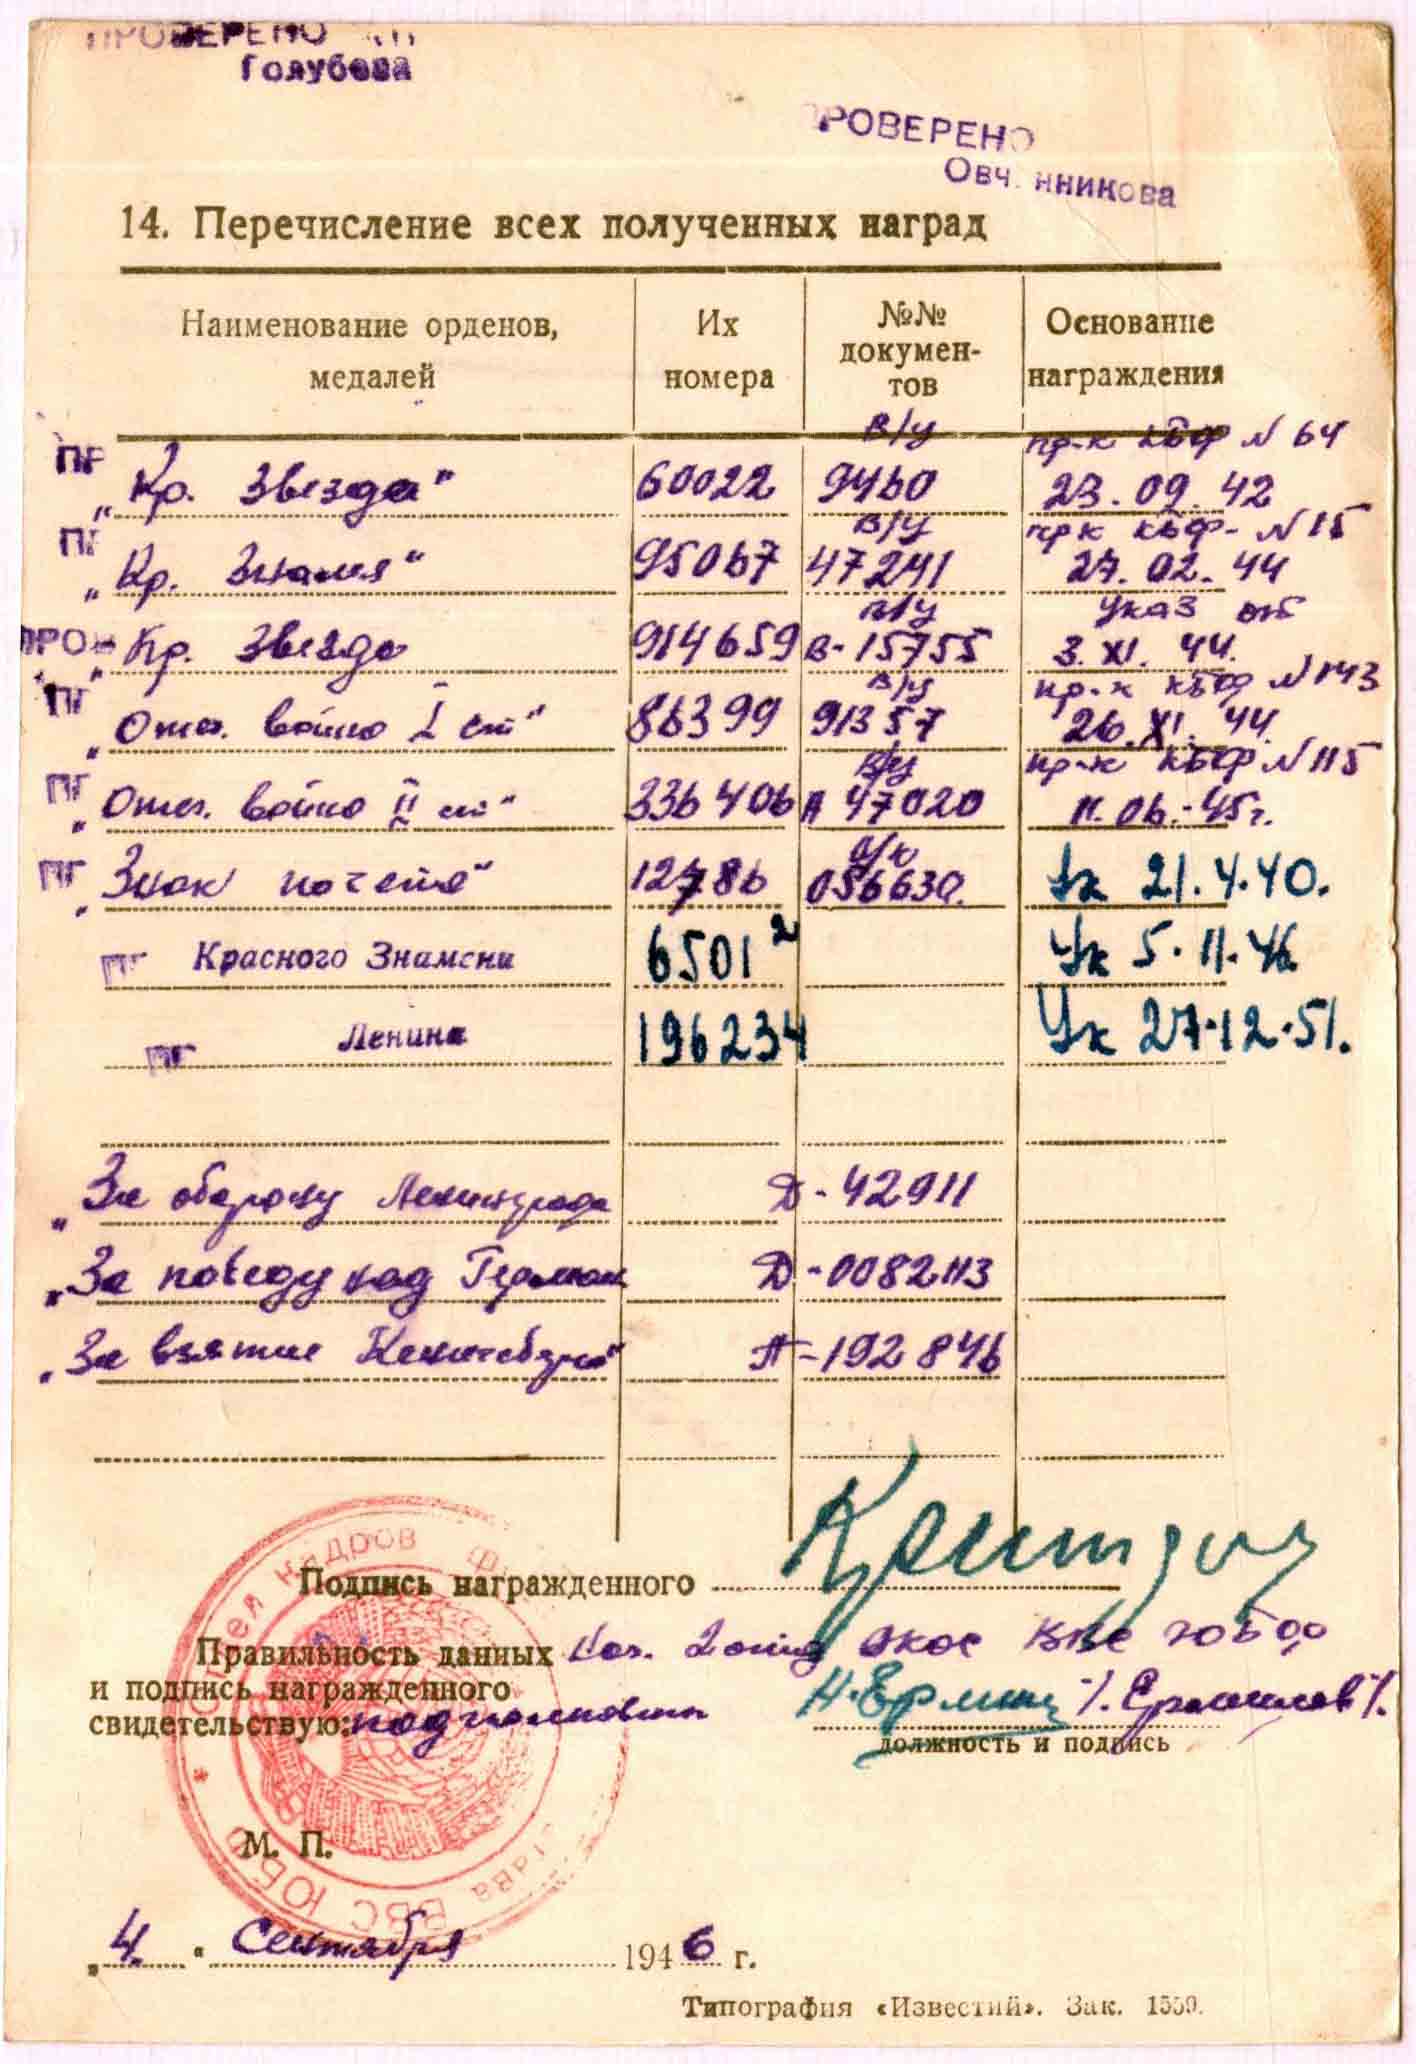 ПРОВЕРЕНО
Голубева
ПРОВЕРЕНО
Овчинникова
14. Перечисление всех полученных наград
Наименование орденов, медалей
Их номера
№№ документов
Основание награждения
в/у пр-к КБФ N 64
ПР „Кр. Звезда" 60022 9460 23.09.42
в/у пр-к КБФ- N 15
ПР „Кр. Знамя" 95067 47241 27.02.44
в/у Указ от
ПРОВ „Кр. Звезда 914659 В-15755 3.XI.44.
в/у пр-к КБФ N 143
ПР „Отеч. война I ст" 86399 91357 26.XI.44.
в/у пр-к КБФ N 115
ПР „Отеч. война II ст" 336406 А 47020 11.06.-45г.
о/к
ПР „Знак почета" 12786 056630. Ук 21.4.40.
ПР Красного Знамени 65012 Ук 5.11.46.
ПР Ленина 196234 Ук 27.12.51.
„За оборону Ленинграда Д-42911
„За победу над Герман Д-0082113
„За взятие Кенигсберга" А-192846
Подпись награжденного
Правильность данных Нач. 2 отд ВВС ЮБФ
и подпись награжденного
свидетельствую: подполковник /Ермилов/.
должность и подпись
Отдел кадров
ВВС ЮБФ
М. П.
„4." Сентября 1946 г.
Типография «Известий». Зак. 1559.